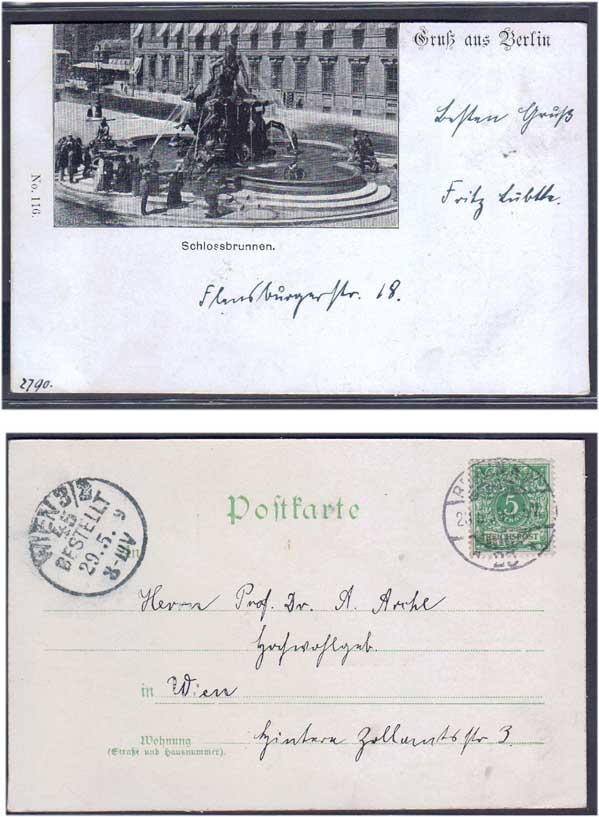 Gruß aus Berlin
Besten Gruß
Fritz Lübtke.
No. 116.
Schlossbrunnen.
Flensburgerstr. 18.
2790.
Postkarte
WIEN 3/3
BESTELLT
29.5
5
REICHSPOST
An
Herrn Prof. Dr. A.
Hochwohlgeb.
in Wien
Wohnung
(Straße und Hausnummer).
Hintere Zollamtsstr 3.